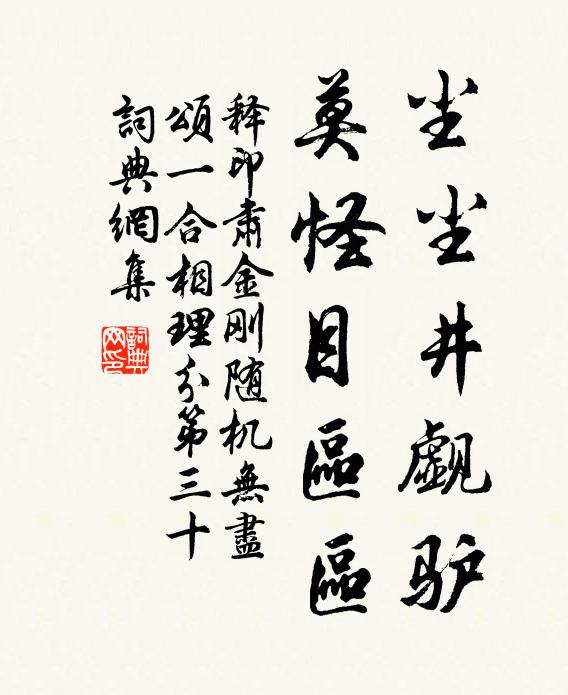 尘尘井觑驴
莫怪目區區
释印肃金刚随机無盡
頌一合相理分第三十
詞典網集
詞典網印